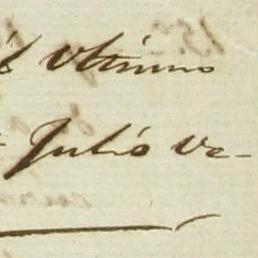 Ultimo
Julio Ve-